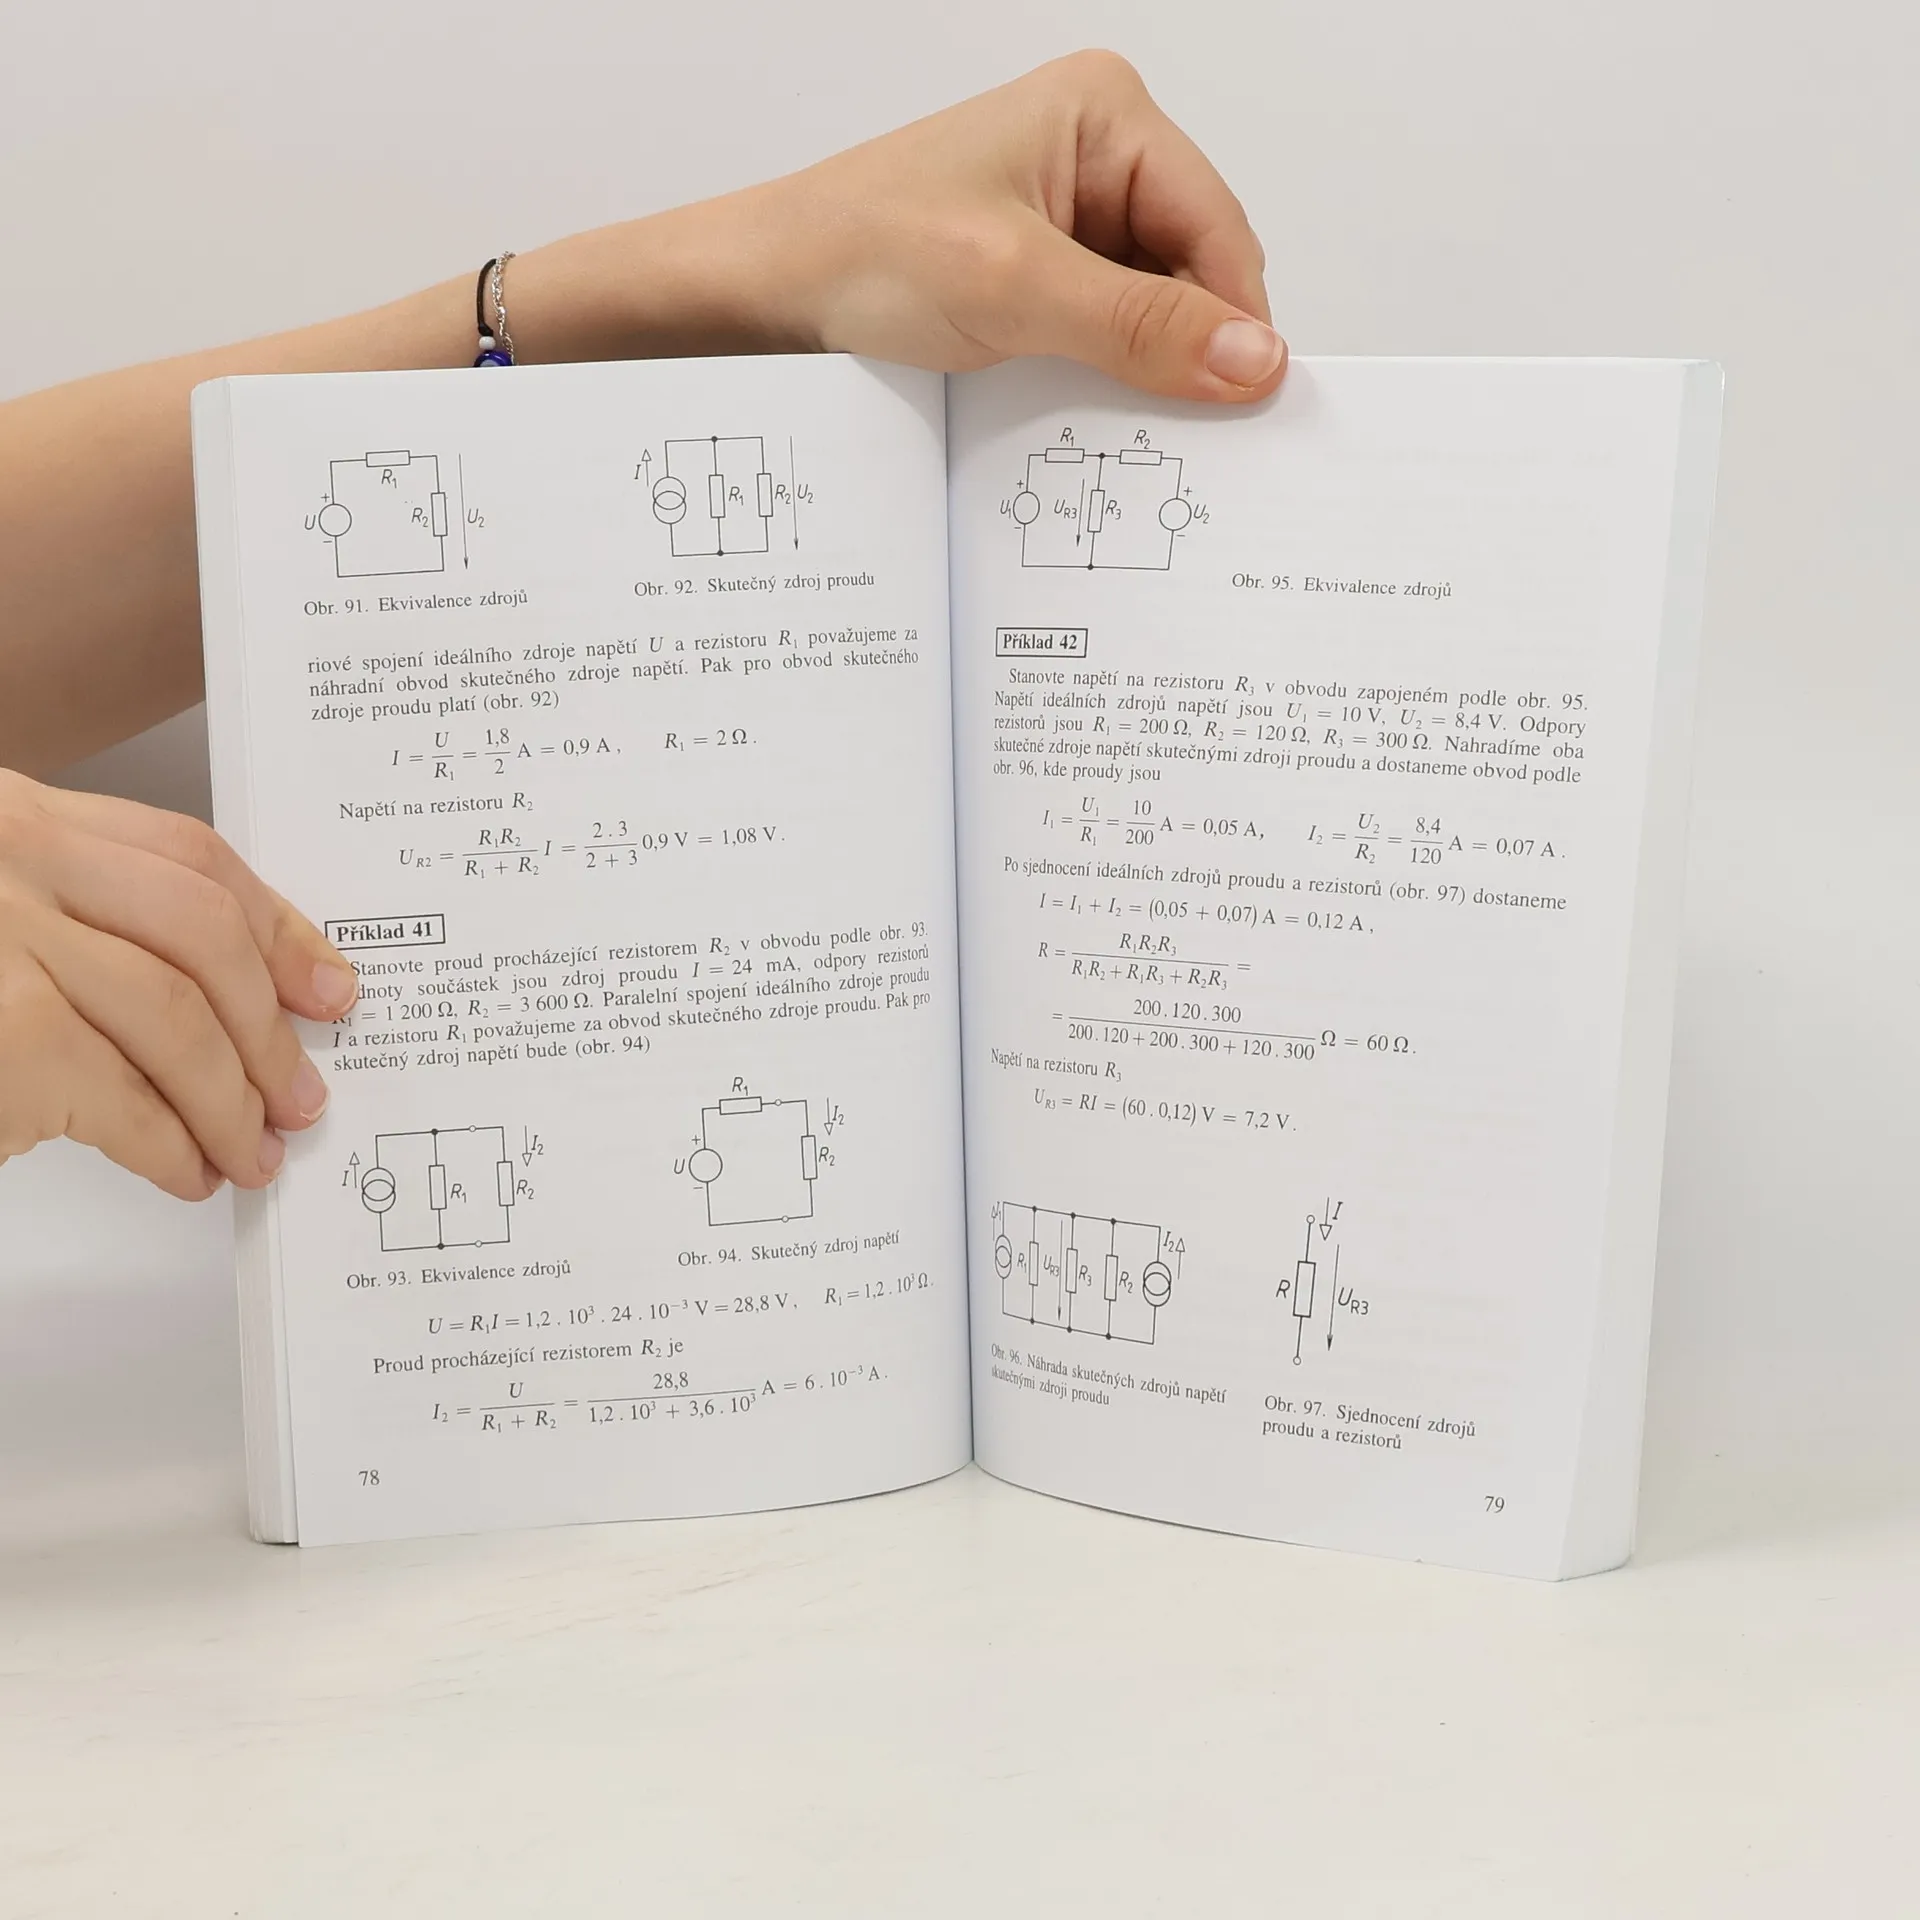 R₁
R₂
U
U₂
+
−
Obr. 91. Ekvivalence zdrojů
I
R₁
R₂
U₂
Obr. 92. Skutečný zdroj proudu
riové spojení ideálního zdroje napětí U a rezistoru R₁ považujeme za
náhradní obvod skutečného zdroje napětí. Pak pro obvod skutečného
zdroje proudu platí (obr. 92)
I = U/R₁ = 1,8/2 A = 0,9 A, R₁ = 2 Ω.
Napětí na rezistoru R₂
U_R2 = R₁R₂/(R₁ + R₂) I = 2 . 3/(2 + 3) 0,9 V = 1,08 V.
Příklad 41
Stanovte proud procházející rezistorem R₂ v obvodu podle obr. 93.
dnoty součástek jsou zdroj proudu I = 24 mA, odpory rezistorů
R₁ = 1 200 Ω, R₂ = 3 600 Ω. Paralelní spojení ideálního zdroje proudu
I a rezistoru R₁ považujeme za obvod skutečného zdroje proudu. Pak pro
skutečný zdroj napětí bude (obr. 94)
I
R₁
R₂
I₂
Obr. 93. Ekvivalence zdrojů
R₁
I₂
U
R₂
+
−
Obr. 94. Skutečný zdroj napětí
U = R₁I = 1,2 . 10³ . 24 . 10⁻³ V = 28,8 V, R₁ = 1,2 . 10³ Ω.
Proud procházející rezistorem R₂ je
I₂ = U/(R₁ + R₂) = 28,8/(1,2 . 10³ + 3,6 . 10³) A = 6 . 10⁻³ A.
78
R₁
R₂
U₁
U_R3
R₃
U₂
+
−
+
−
Obr. 95. Ekvivalence zdrojů
Příklad 42
Stanovte napětí na rezistoru R₃ v obvodu zapojeném podle obr. 95.
Napětí ideálních zdrojů napětí jsou U₁ = 10 V, U₂ = 8,4 V. Odpory
rezistorů jsou R₁ = 200 Ω, R₂ = 120 Ω, R₃ = 300 Ω. Nahradíme oba
skutečné zdroje napětí skutečnými zdroji proudu a dostaneme obvod podle
obr. 96, kde proudy jsou
I₁ = U₁/R₁ = 10/200 A = 0,05 A, I₂ = U₂/R₂ = 8,4/120 A = 0,07 A.
Po sjednocení ideálních zdrojů proudu a rezistorů (obr. 97) dostaneme
I = I₁ + I₂ = (0,05 + 0,07) A = 0,12 A,
R = R₁R₂R₃/(R₁R₂ + R₁R₃ + R₂R₃) =
= 200 . 120 . 300/(200 . 120 + 200 . 300 + 120 . 300) Ω = 60 Ω.
Napětí na rezistoru R₃
U_R3 = RI = (60 . 0,12) V = 7,2 V.
I₁
R₁
U_R3
R₃
R₂
I₂
Obr. 96. Náhrada skutečných zdrojů napětí
skutečnými zdroji proudu
I
R
U_R3
Obr. 97. Sjednocení zdrojů
proudu a rezistorů
79